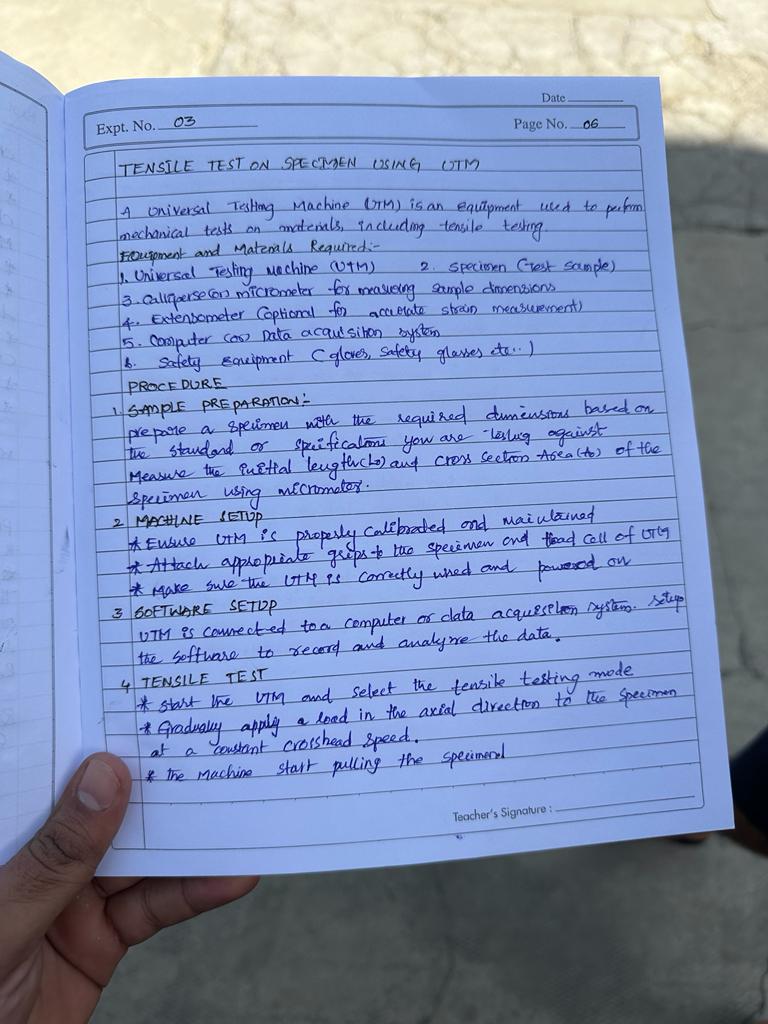 Date
Expt. No. 03
Page No. 06
TENSILE TEST ON SPECIMEN USING UTM
A Universal Testing Machine (UTM) is an equipment used to perform
mechanical tests on materials, including tensile testing.
Equipment and Materials Required:-
1. Universal Testing Machine (UTM) 2. Specimen (Test Sample)
3. Callipers (or) micrometer for measuring sample dimensions
4. Extensometer (optional for accurate strain measurement)
5. Computer (or) Data acquisition system
6. Safety equipment (gloves, Safety glasses etc..)
PROCEDURE
1. SAMPLE PREPARATION:-
prepare a specimen with the required dimensions based on
the standard or specifications you are testing against
Measure the initial length (Lo) and cross section Area (Ao) of the
Specimen using micrometer.
2 MACHINE SETUP
* Ensure UTM is properly calibrated and maintained
* Attach appropriate grips to the specimen and load cell of UTM
* Make sure the UTM is correctly wired and powered on
3 SOFTWARE SETUP
UTM is connected to a computer or data acquisition system. Setup
the software to record and analyze the data.
4 TENSILE TEST
* start the UTM and select the tensile testing mode
* Gradually apply a load in the axial direction to the specimen
at a constant crosshead speed.
* the Machine start pulling the specimen
Teacher's Signature :